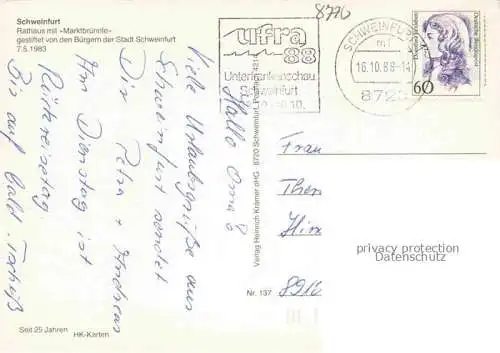 Schweinfurt
Rathaus mit »Marktbrünnle«
gestiftet von den Bürgern der Stadt Schweinfurt
7.5.1983
8720
ufra
88
Unterfrankenschau
Schweinfurt
SCHWEINFURT
mf
16.10.88-14
872
60
Hallo Oma!
Viele Urlaubsgrüße aus
Schweinfurt sendet
Dir Petra + Andreas
Am Dienstag ist
Rückreisetag
Bis auf bald. Tschüß
Verlag Heinrich Krämer oHG · 8720 Schweinfurt
Frau
Ther
Hirz
privacy protection
Datenschutz
Nr. 137
Seit 25 Jahren
HK-Karten